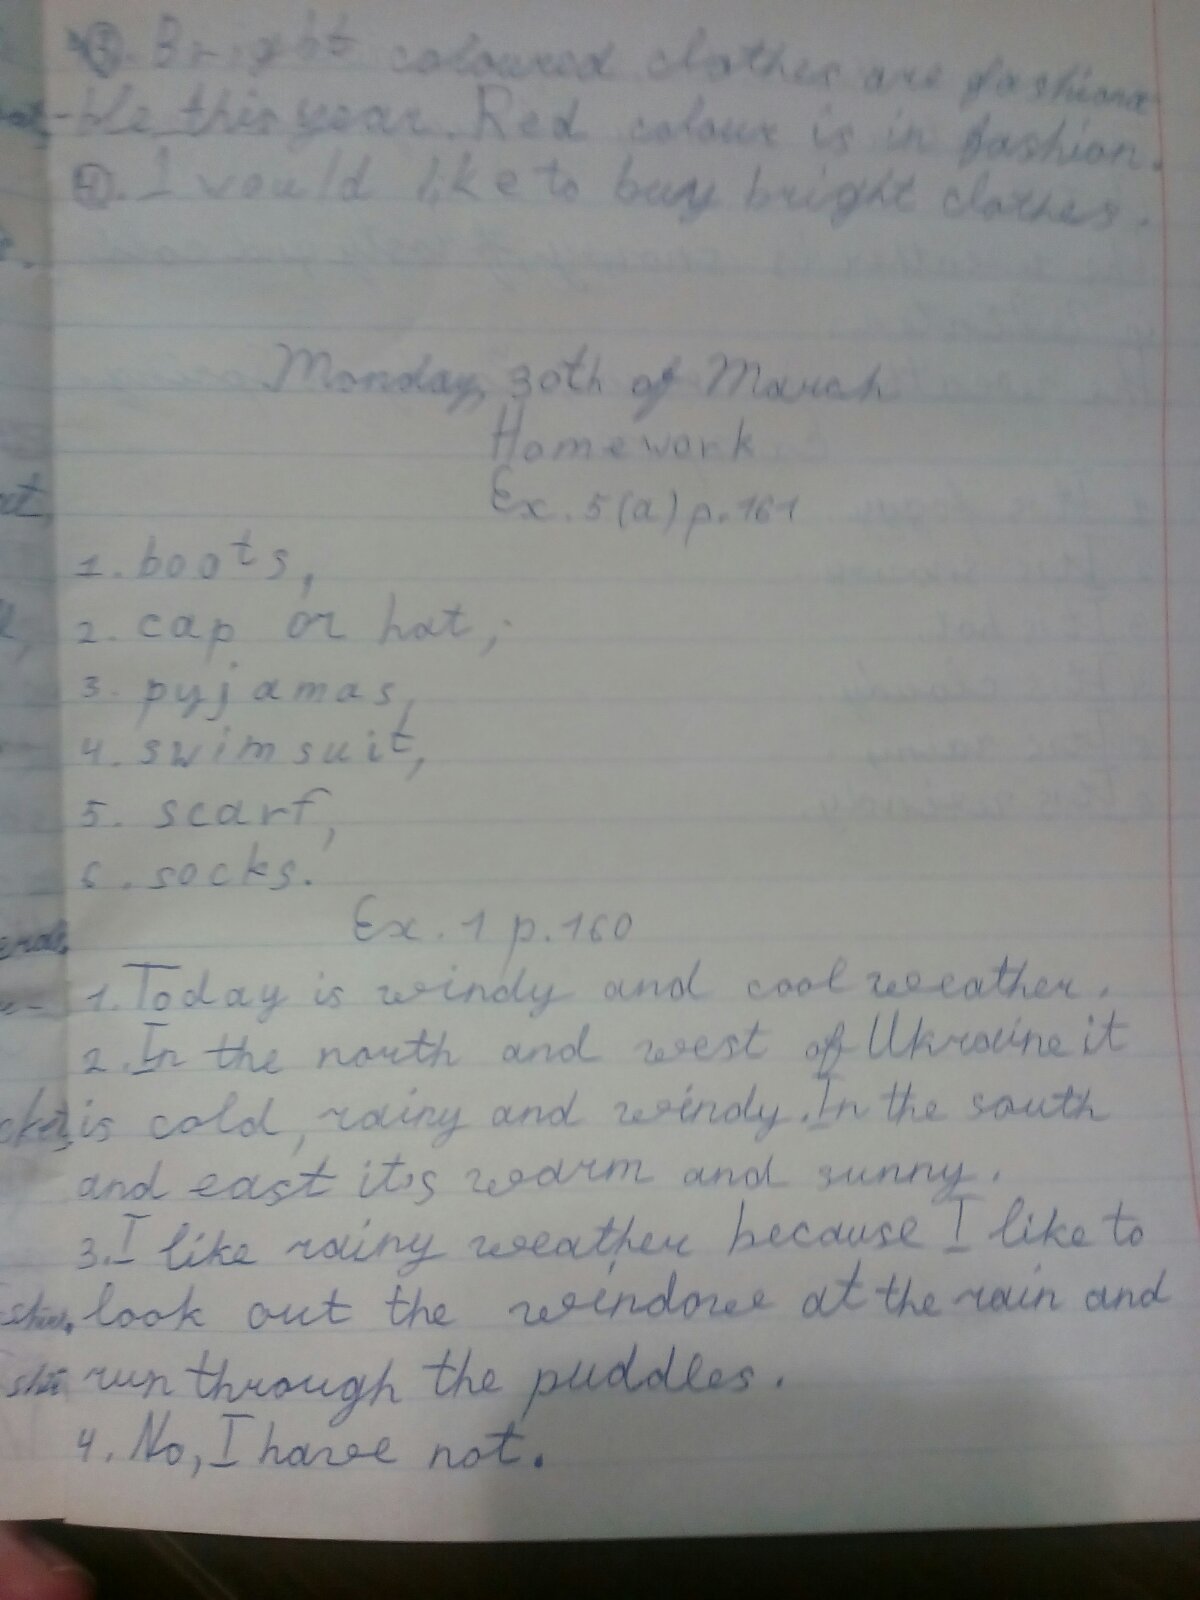 ③. Bright coloured clothes are fashiona
-ble this year. Red colour is in fashion.
④. I would like to buy bright clothes.
Monday, 30th of March
Homework
Ex. 5(a) p. 161
1. boots,
2. cap or hat,
3. pyjamas,
4. swimsuit,
5. scarf,
6. socks.
Ex. 1 p. 160
1. Today is windy and cool weather.
2. In the north and west of Ukraine it
is cold, rainy and windy. In the south
and east it's warm and sunny.
3. I like rainy weather because I like to
look out the window at the rain and
run through the puddles.
4. No, I have not.